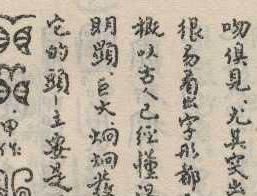 吻俱見.尤其突出
很易看出字形都
概以古人已經懂得
明顯.巨大.炯炯發
它的頭─主要是
甲作